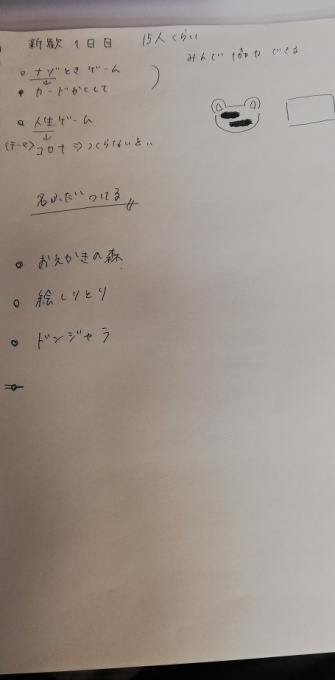 新歓 1日目 15人くらい
みんなで協力できる
ナゾときゲーム
カードかくして
人生ゲーム
(テーマ) コロナ ⇒ つくらないと..
名ふだ つける
おえかきの森
絵しりとり
ドンジャラ